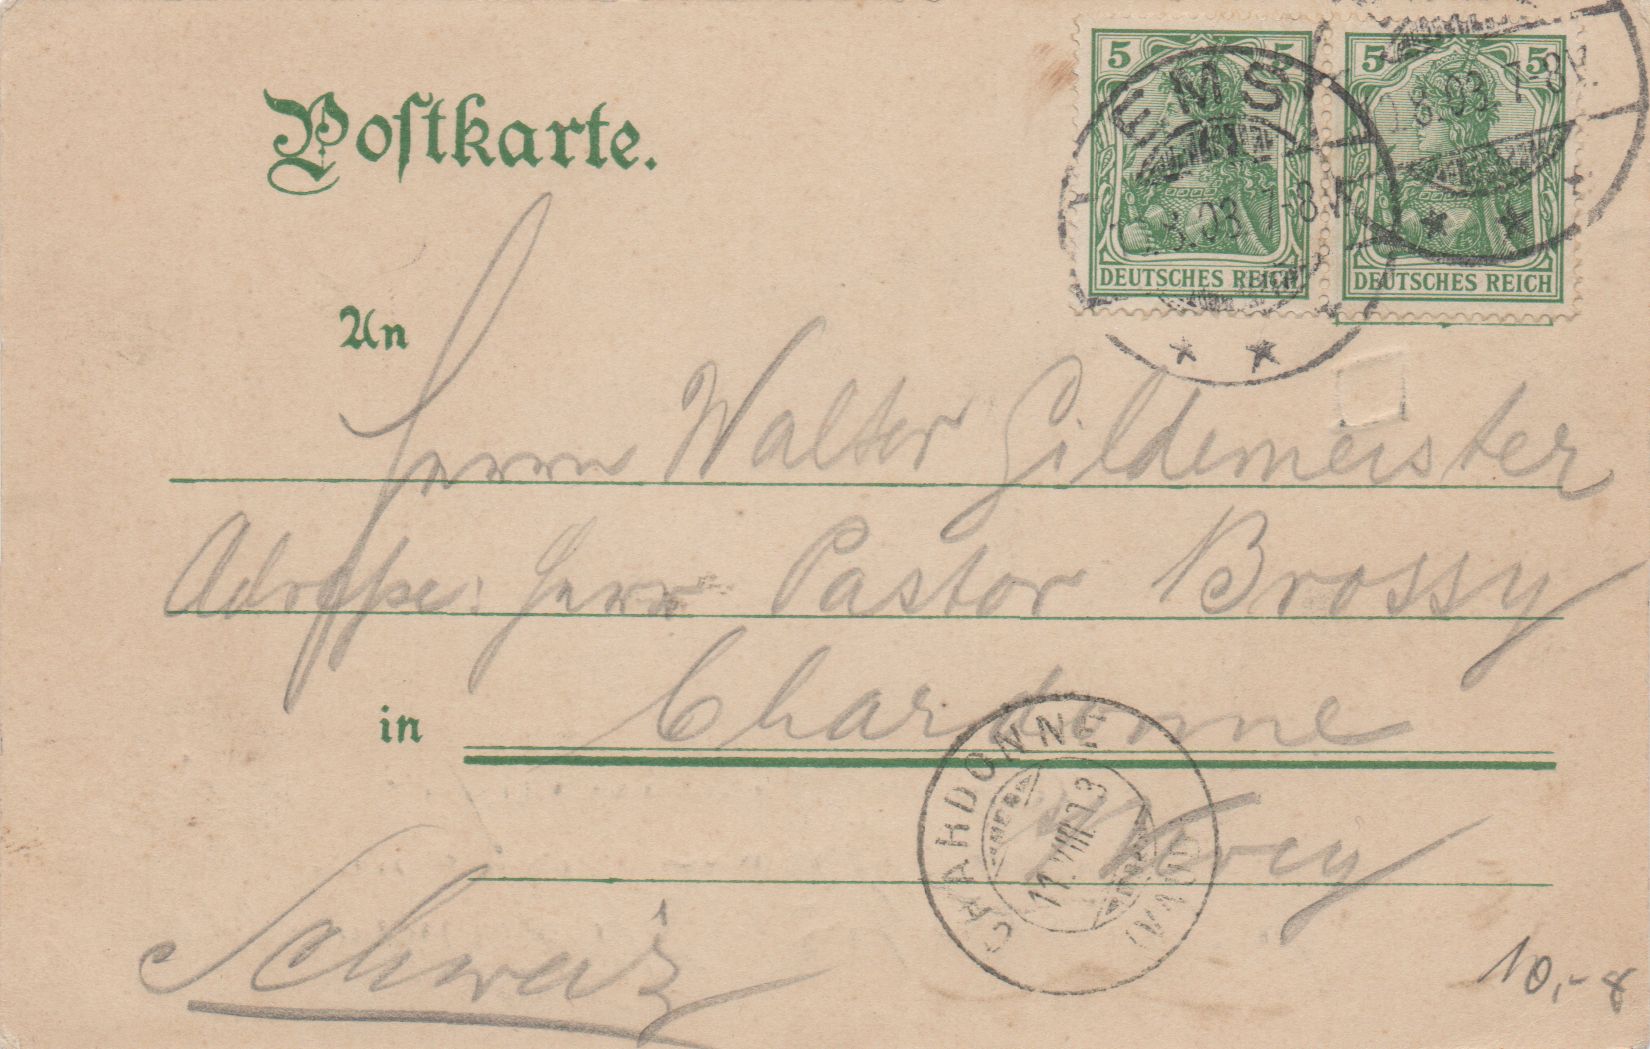 Postkarte.
5 5
5 5
DEUTSCHES REICH
DEUTSCHES REICH
EMS
8.03. 7-8V.
8.03. 7-8V.
An
Herrn Walter Gildemeister
Adresse: Herr Pastor Brossy
in Chardonne
s/ Vevey
Schweiz
CHARDONNE
11.VIII.03
(VAUD)
10,- 8